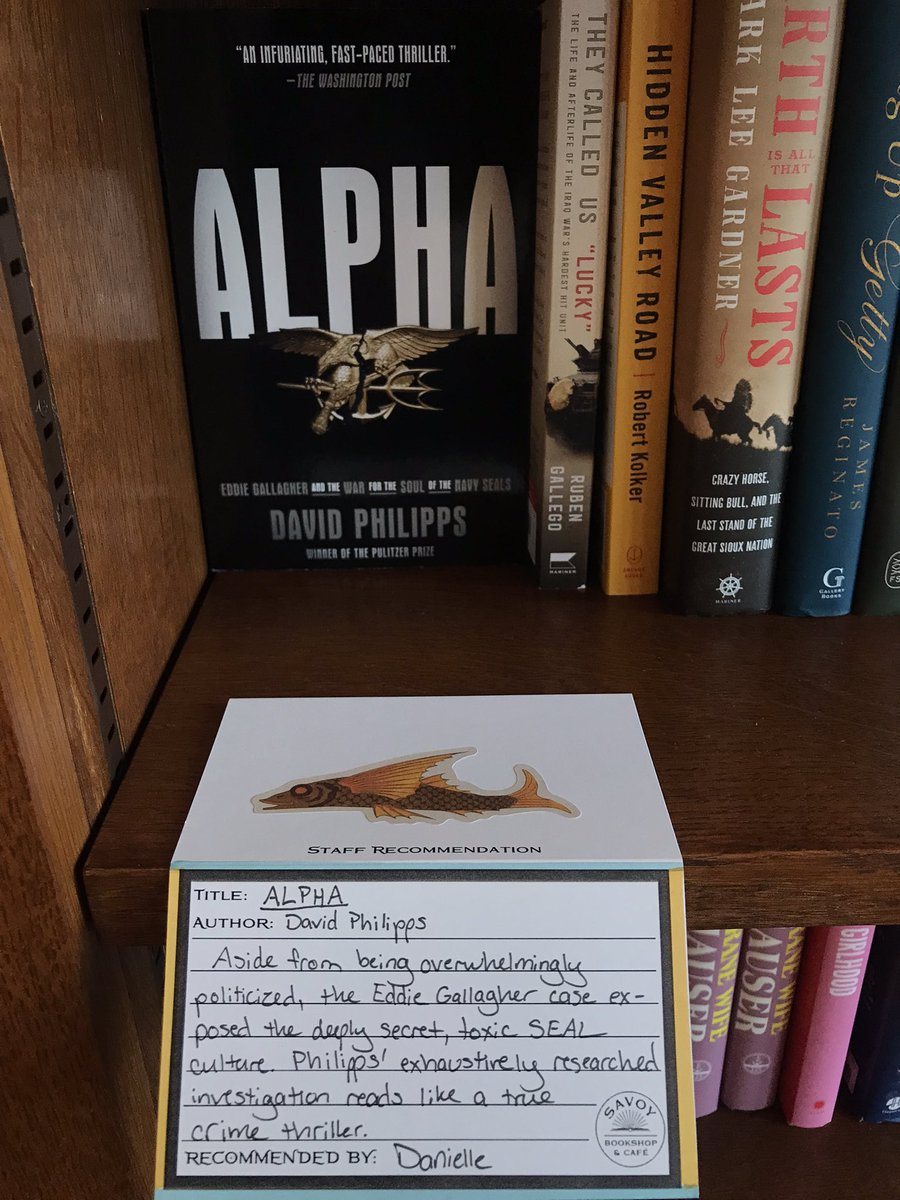 "AN INFURIATING, FAST-PACED THRILLER."
—THE WASHINGTON POST
ALPHA
EDDIE GALLAGHER AND THE WAR FOR THE SOUL OF THE NAVY SEALS
DAVID PHILIPPS
WINNER OF THE PULITZER PRIZE
THEY CALLED US "LUCKY"
THE LIFE AND AFTERLIFE OF THE IRAQ WAR'S HARDEST HIT UNIT
RUBEN GALLEGO
MARINER
HIDDEN VALLEY ROAD
Robert Kolker
ARK LEE GARDNER
RTH
IS ALL
THAT
LASTS
CRAZY HORSE,
SITTING BULL, AND THE
LAST STAND OF THE
GREAT SIOUX NATION
MARINER
Up Getty
JAMES REGINATO
G
GALLERY
BOOKS
STAFF RECOMMENDATION
TITLE: ALPHA
AUTHOR: David Philipps
Aside from being overwhelmingly
politicized, the Eddie Gallagher case ex-
posed the deeply secret, toxic SEAL
culture. Philipps' exhaustively researched
investigation reads like a true
crime thriller.
RECOMMENDED BY: Danielle
SAVOY
BOOKSHOP
& CAFÉ
RANE WIFE
AUSER
RANE WIFE
AUSER
GIRLHOOD